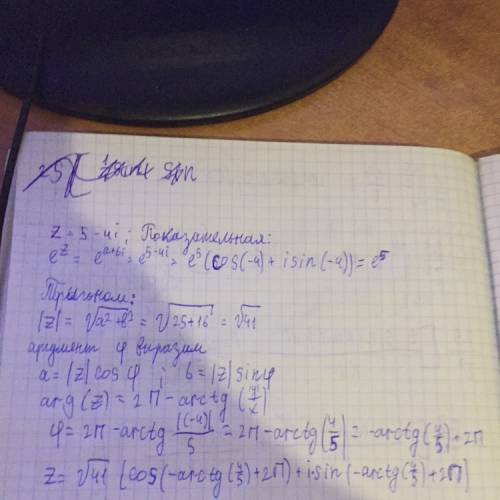 z = 5 - 4i ; Показательная:
e^z = e^{a+bi} = e^{5-4i} = e^5 (cos(-4) + i sin(-4)) = e^5
Тригоном:
|z| = √(a²+b²) = √(25+16) = √41
аргумент φ выразим
a = |z| cos φ ; b = |z| sin φ
arg(z) = 2π - arctg(|y|/x)
φ = 2π - arctg |(-4)|/5 = 2π - arctg(4/5) = -arctg(4/5) + 2π
z = √41 (cos(-arctg(4/5) + 2π) + i sin(-arctg(4/5) + 2π)